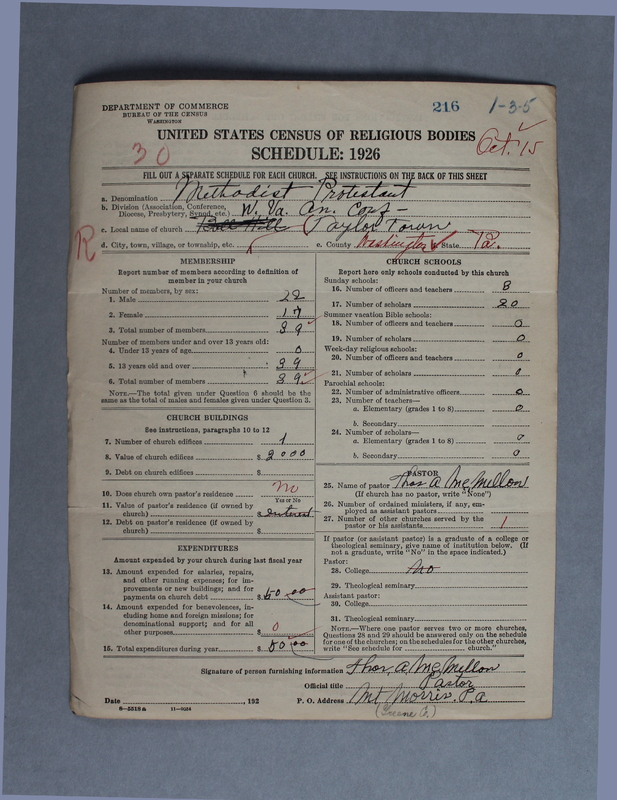 DEPARTMENT OF COMMERCE
BUREAU OF THE CENSUS
WASHINGTON
216
1-3-5
UNITED STATES CENSUS OF RELIGIOUS BODIES
SCHEDULE: 1926
30
Oct. 15
FILL OUT A SEPARATE SCHEDULE FOR EACH CHURCH. SEE INSTRUCTIONS ON THE BACK OF THIS SHEET
a. Denomination Methodist Protestant
b. Division (Association, Conference, Diocese, Presbytery, Synod, etc.) W. Va. An. Conf-
c. Local name of church Taylor Town
R
d. City, town, village, or township, etc.
e. County Washington State Pa.
MEMBERSHIP
Report number of members according to definition of member in your church
Number of members, by sex:
1. Male 22
2. Female 17
3. Total number of members 39
Number of members under and over 13 years old:
4. Under 13 years of age 0
5. 13 years old and over 39
6. Total number of members 39
NOTE.—The total given under Question 6 should be the same as the total of males and females given under Question 3.
CHURCH BUILDINGS
See instructions, paragraphs 10 to 12
7. Number of church edifices 1
8. Value of church edifices $2000
9. Debt on church edifices $
10. Does church own pastor's residence No
Yes or No
11. Value of pastor's residence (if owned by church) $ interest
12. Debt on pastor's residence (if owned by church) $
EXPENDITURES
Amount expended by your church during last fiscal year
13. Amount expended for salaries, repairs, and other running expenses; for improvements or new buildings; and for payments on church debt $50.00
14. Amount expended for benevolences, including home and foreign missions; for denominational support; and for all other purposes $0
15. Total expenditures during year $50.00
CHURCH SCHOOLS
Report here only schools conducted by this church
Sunday schools:
16. Number of officers and teachers 8
17. Number of scholars 20
Summer vacation Bible schools:
18. Number of officers and teachers 0
19. Number of scholars 0
Week-day religious schools:
20. Number of officers and teachers 0
21. Number of scholars 0
Parochial schools:
22. Number of administrative officers 0
23. Number of teachers—
a. Elementary (grades 1 to 8) 0
b. Secondary
24. Number of scholars—
a. Elementary (grades 1 to 8) 0
b. Secondary 0
PASTOR
25. Name of pastor Thos. A McMillon
(If church has no pastor, write "None")
26. Number of ordained ministers, if any, employed as assistant pastors
27. Number of other churches served by the pastor or his assistants 1
If pastor (or assistant pastor) is a graduate of a college or theological seminary, give name of institution below. (If not a graduate, write "No" in the space indicated.)
Pastor:
28. College No
29. Theological seminary
Assistant pastor:
30. College
31. Theological seminary
NOTE.—Where one pastor serves two or more churches, Questions 28 and 29 should be answered only on the schedule for one of the churches; on the schedules for the other churches, write "See schedule for church."
Signature of person furnishing information Thos. A McMillon
Official title Pastor
Date , 192
P. O. Address Mt Morris. Pa
(Greene Co.)
8—5518a 11—9034